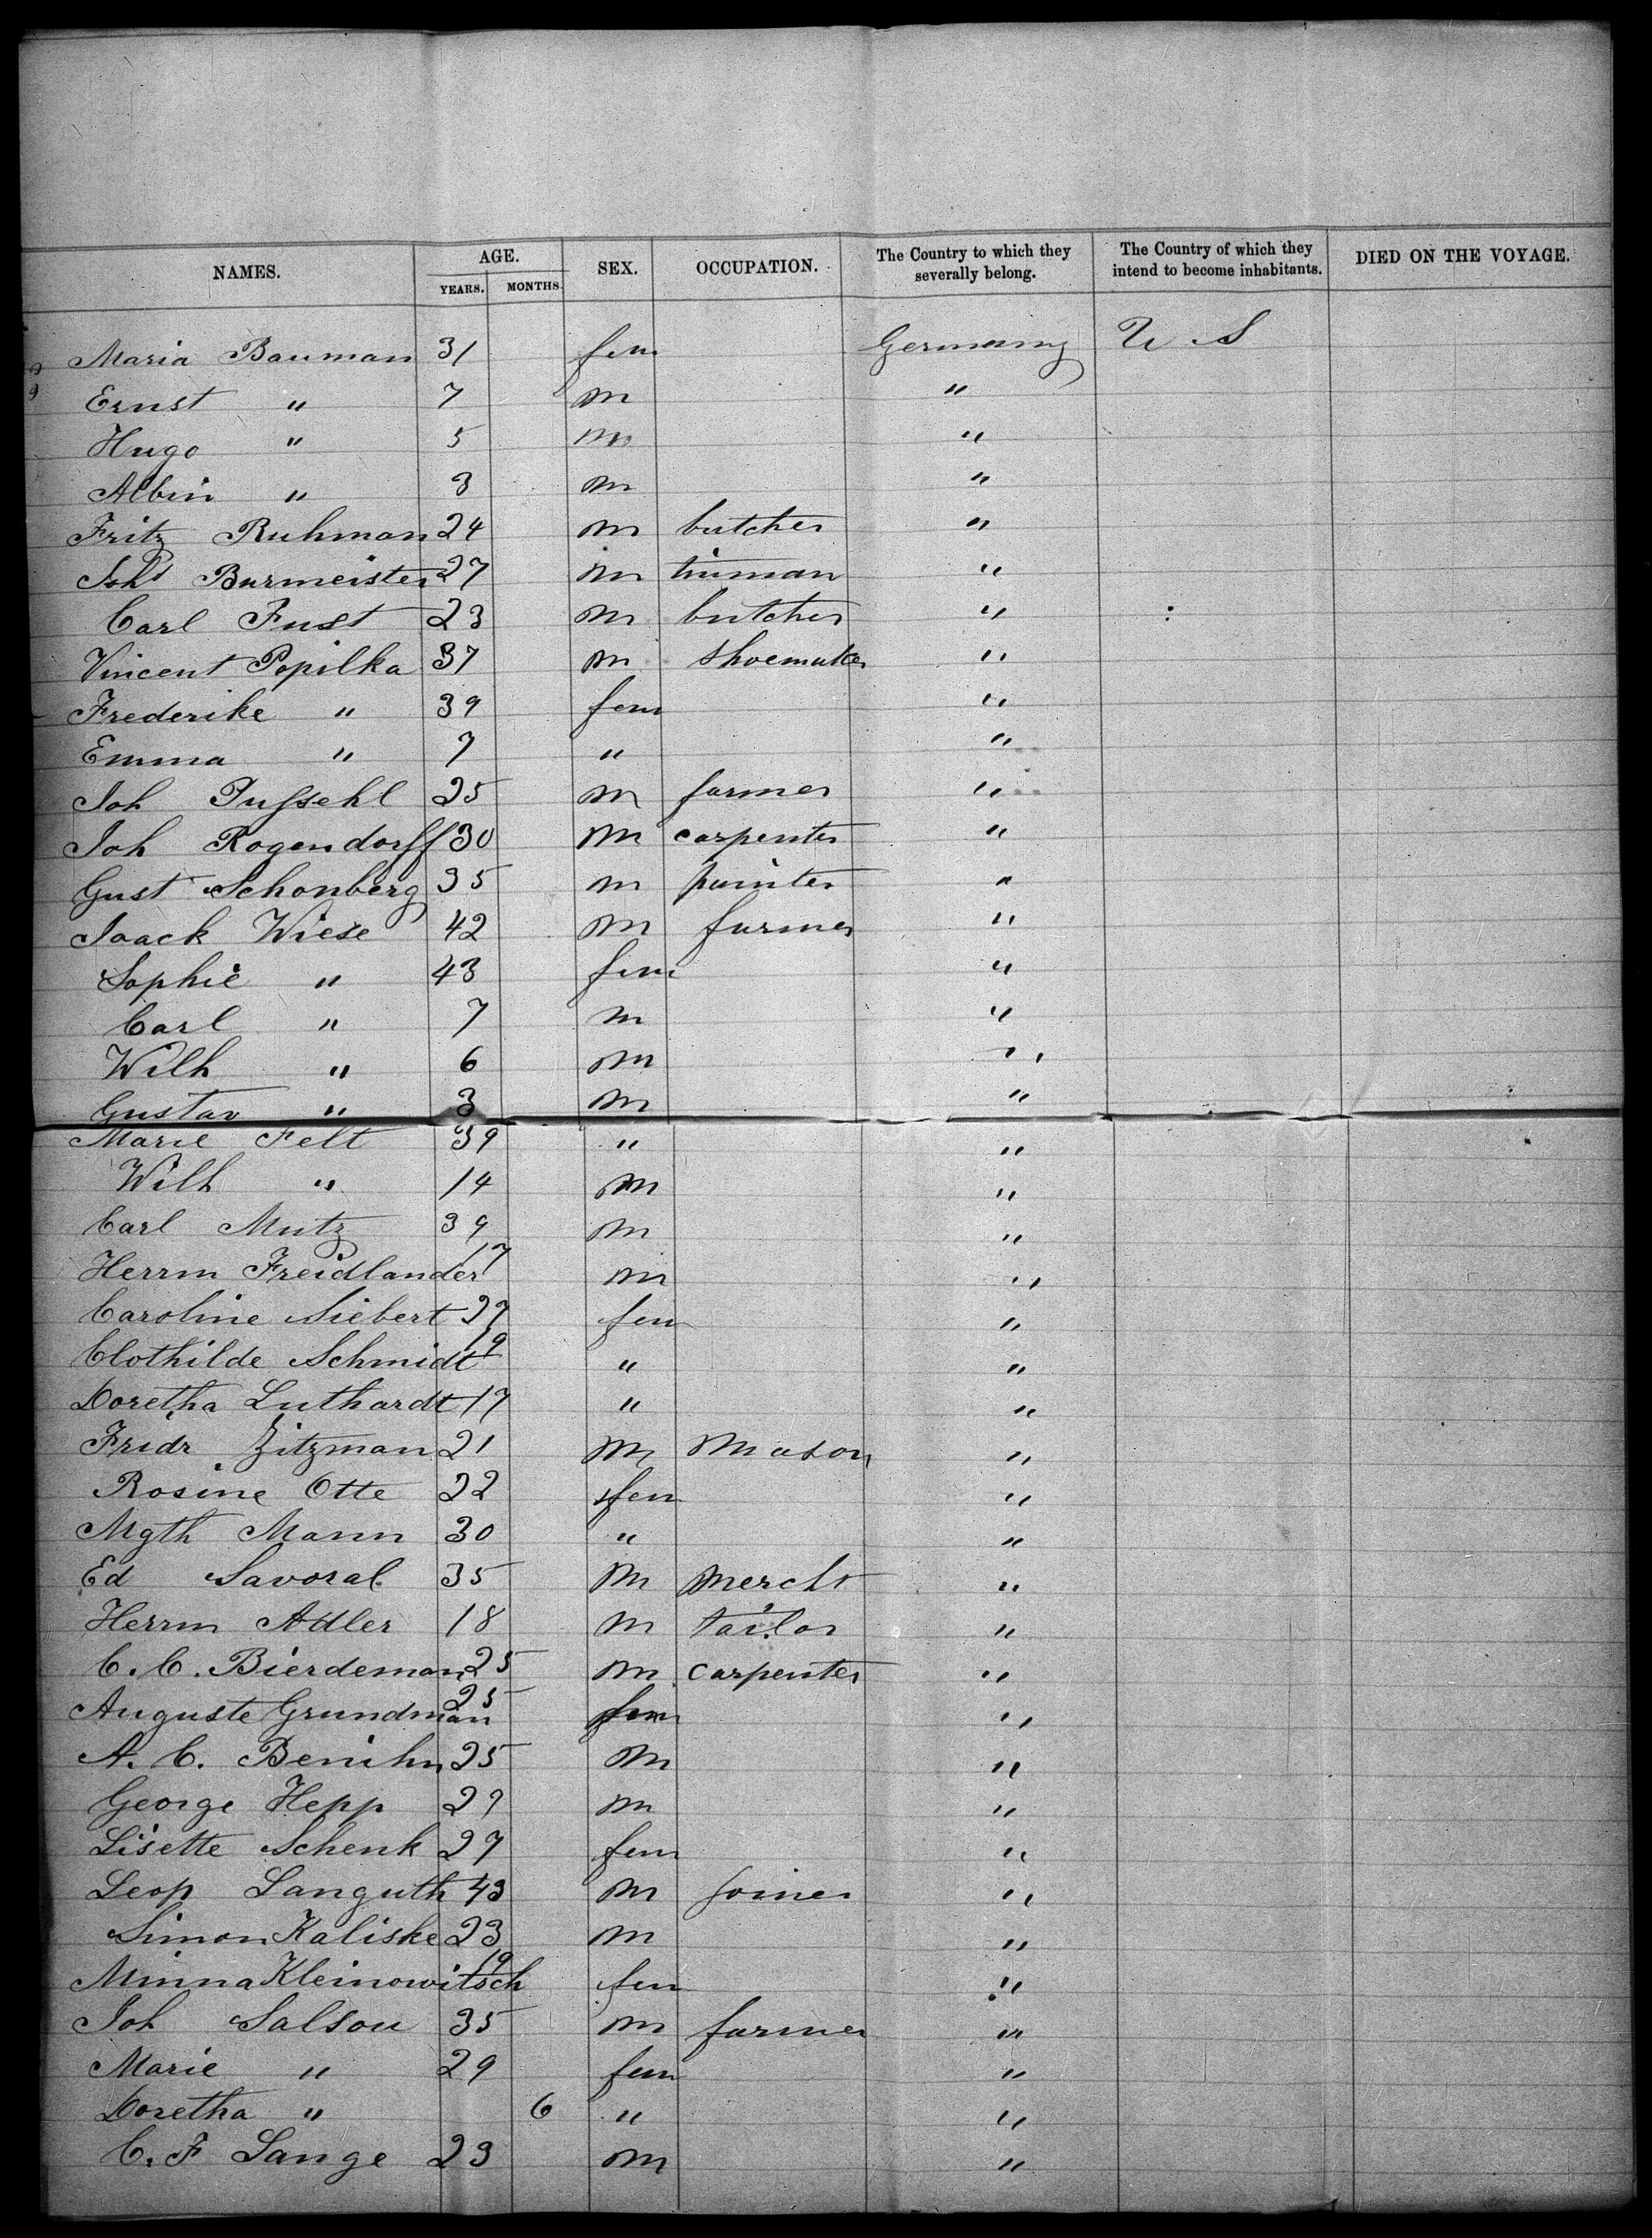 NAMES. AGE. SEX. OCCUPATION. The Country to which they severally belong. The Country of which they intend to become inhabitants. DIED ON THE VOYAGE.
YEARS. MONTHS.
Maria Bauman 31 fem Germany U S
Ernst " 7 m "
Hugo " 5 m "
Albin " 3 m "
Fritz Ruhman 24 m butcher "
Joh Burmeister 27 m tinman "
Carl Fust 23 m butcher "
Vincent Popilka 37 m shoemaker "
Frederike " 39 fem "
Emma " 7 " "
Joh Pufsehl 25 m farmer "
Joh Rogendorff 30 m carpenter "
Gust Schonberg 35 m painter "
Jaack Wiese 42 m farmer "
Sophie " 43 fem "
Carl " 7 m "
Wilh " 6 m "
Gustav " 3 m "
Marie Felt 39 " "
Wilh " 14 m "
Carl Mutz 39 m "
Herrm Freidlander 17 m "
Caroline Siebert 27 fem "
Clothilde Schmidt 19 " "
Doretha Luthardt 17 " "
Fridr Zitzman 21 m mason "
Rosine Otte 22 fem "
Mgth Mann 30 " "
Ed Savoral 35 m mercht "
Herrm Adler 18 m tailor "
C. C. Bierdeman 25 m carpenter "
Auguste Grundman 25 fem "
A. C. Benihn 25 m "
George Hepp 29 m "
Lisette Schenk 27 fem "
Leop Languth 43 m joiner "
Simon Kaliske 23 m "
Minna Kleinowitsch 19 fem "
Joh Salsou 35 m farmer "
Marie " 29 fem "
Doretha " 6 " "
C. F Lange 23 m "